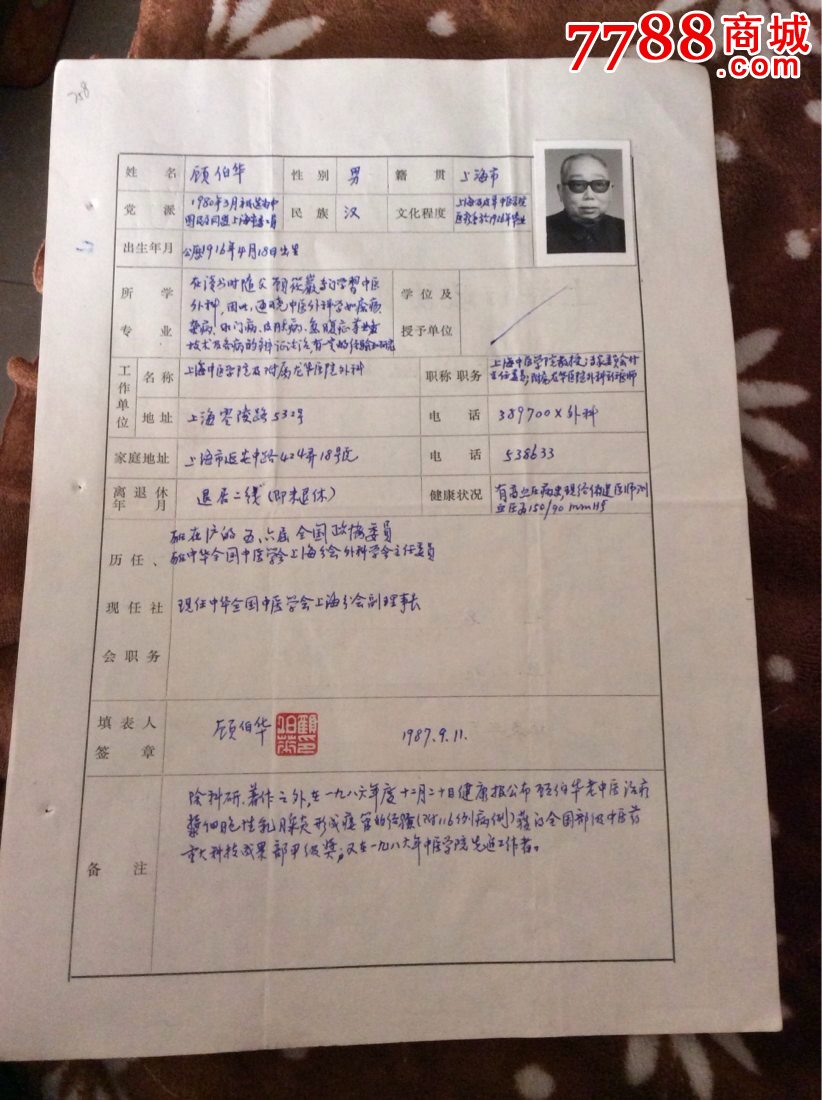 7788商城
.com
758
姓名 顾伯华 性别 男 籍贯 上海市
党派 1980年3月 民族 汉 文化程度
出生年月 公历1916年4月18日出生
所学专业
外科,因此,通晓中医外科学如疮疡、
肛门病、皮肤病、急腹症等
学位及授予单位
工作单位 名称 上海中医学院及附属龙华医院外科 职称职务 上海中医学院教授
地址 上海零陵路532号 电话 389700×外科
家庭地址 上海市延安中路424弄18号 电话 538633
离退休年月 退居二线(即未退休) 健康状况 有高血压病史,现经保健医师测
血压为150/90 mmHg
历任、现任社会职务
五、六届全国政协委员
中华全国中医学会上海分会外科学会主任委员
现任中华全国中医学会上海分会副理事长
填表人签章 顾伯华 1987.9.11.
备注
除科研、著作之外,在一九八六年度十二月二十日健康报公布顾伯华老中医治疗
浆细胞性乳腺炎形成瘘管的经验(附116例病例)获得全国部级中医药
重大科技成果部甲级奖;又在一九八六年中医学院先进工作者。